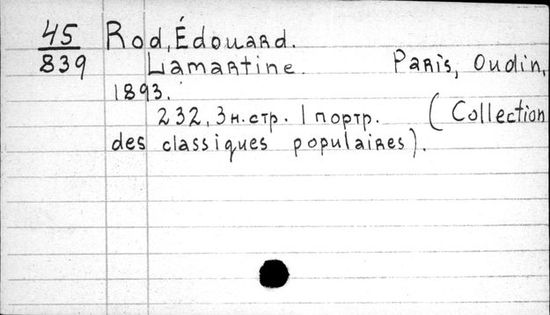 45 Rod, Édouard.
839 Lamartine. Paris, Oudin,
1893.
232, 3 н. стр. 1 портр. (Collection
des classiques populaires).